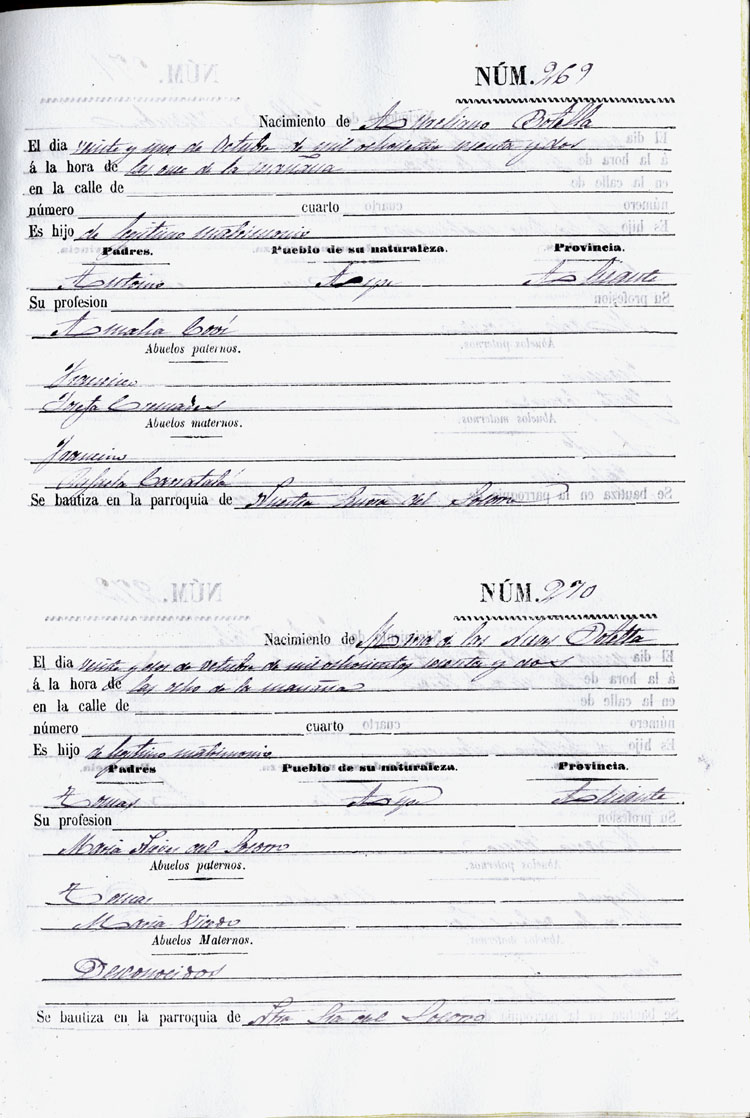 NÚM. 269
Nacimiento de Aureliano Botella
El dia veinte y uno de Octubre de mil ochocientos sesenta y dos
á la hora de las once de la mañana
en la calle de
número cuarto
Es hijo de legitimo matrimonio
Padres. Pueblo de su naturaleza. Provincia.
Antonio Aspe Alicante
Su profesion
Amalia
Abuelos paternos.
Francisco
Josefa Cremades
Abuelos maternos.
Francisco
Rafaela Carratalá
Se bautiza en la parroquia de Nuestra del Socorro
NÚM. 270
Nacimiento de Maria de las Nieves Botella
El dia veinte y dos de octubre de mil ochocientos sesenta y dos
á la hora de las ocho de la mañana
en la calle de
número cuarto
Es hijo de legitimo matrimonio
Padres Pueblo de su naturaleza. Provincia.
Tomas Aspe Alicante
Su profesion
Maria Nieves del Socorro
Abuelos paternos.
Tomas
Maria
Abuelos Maternos.
Desconocidos
Se bautiza en la parroquia de Ntra Sra del Socorro